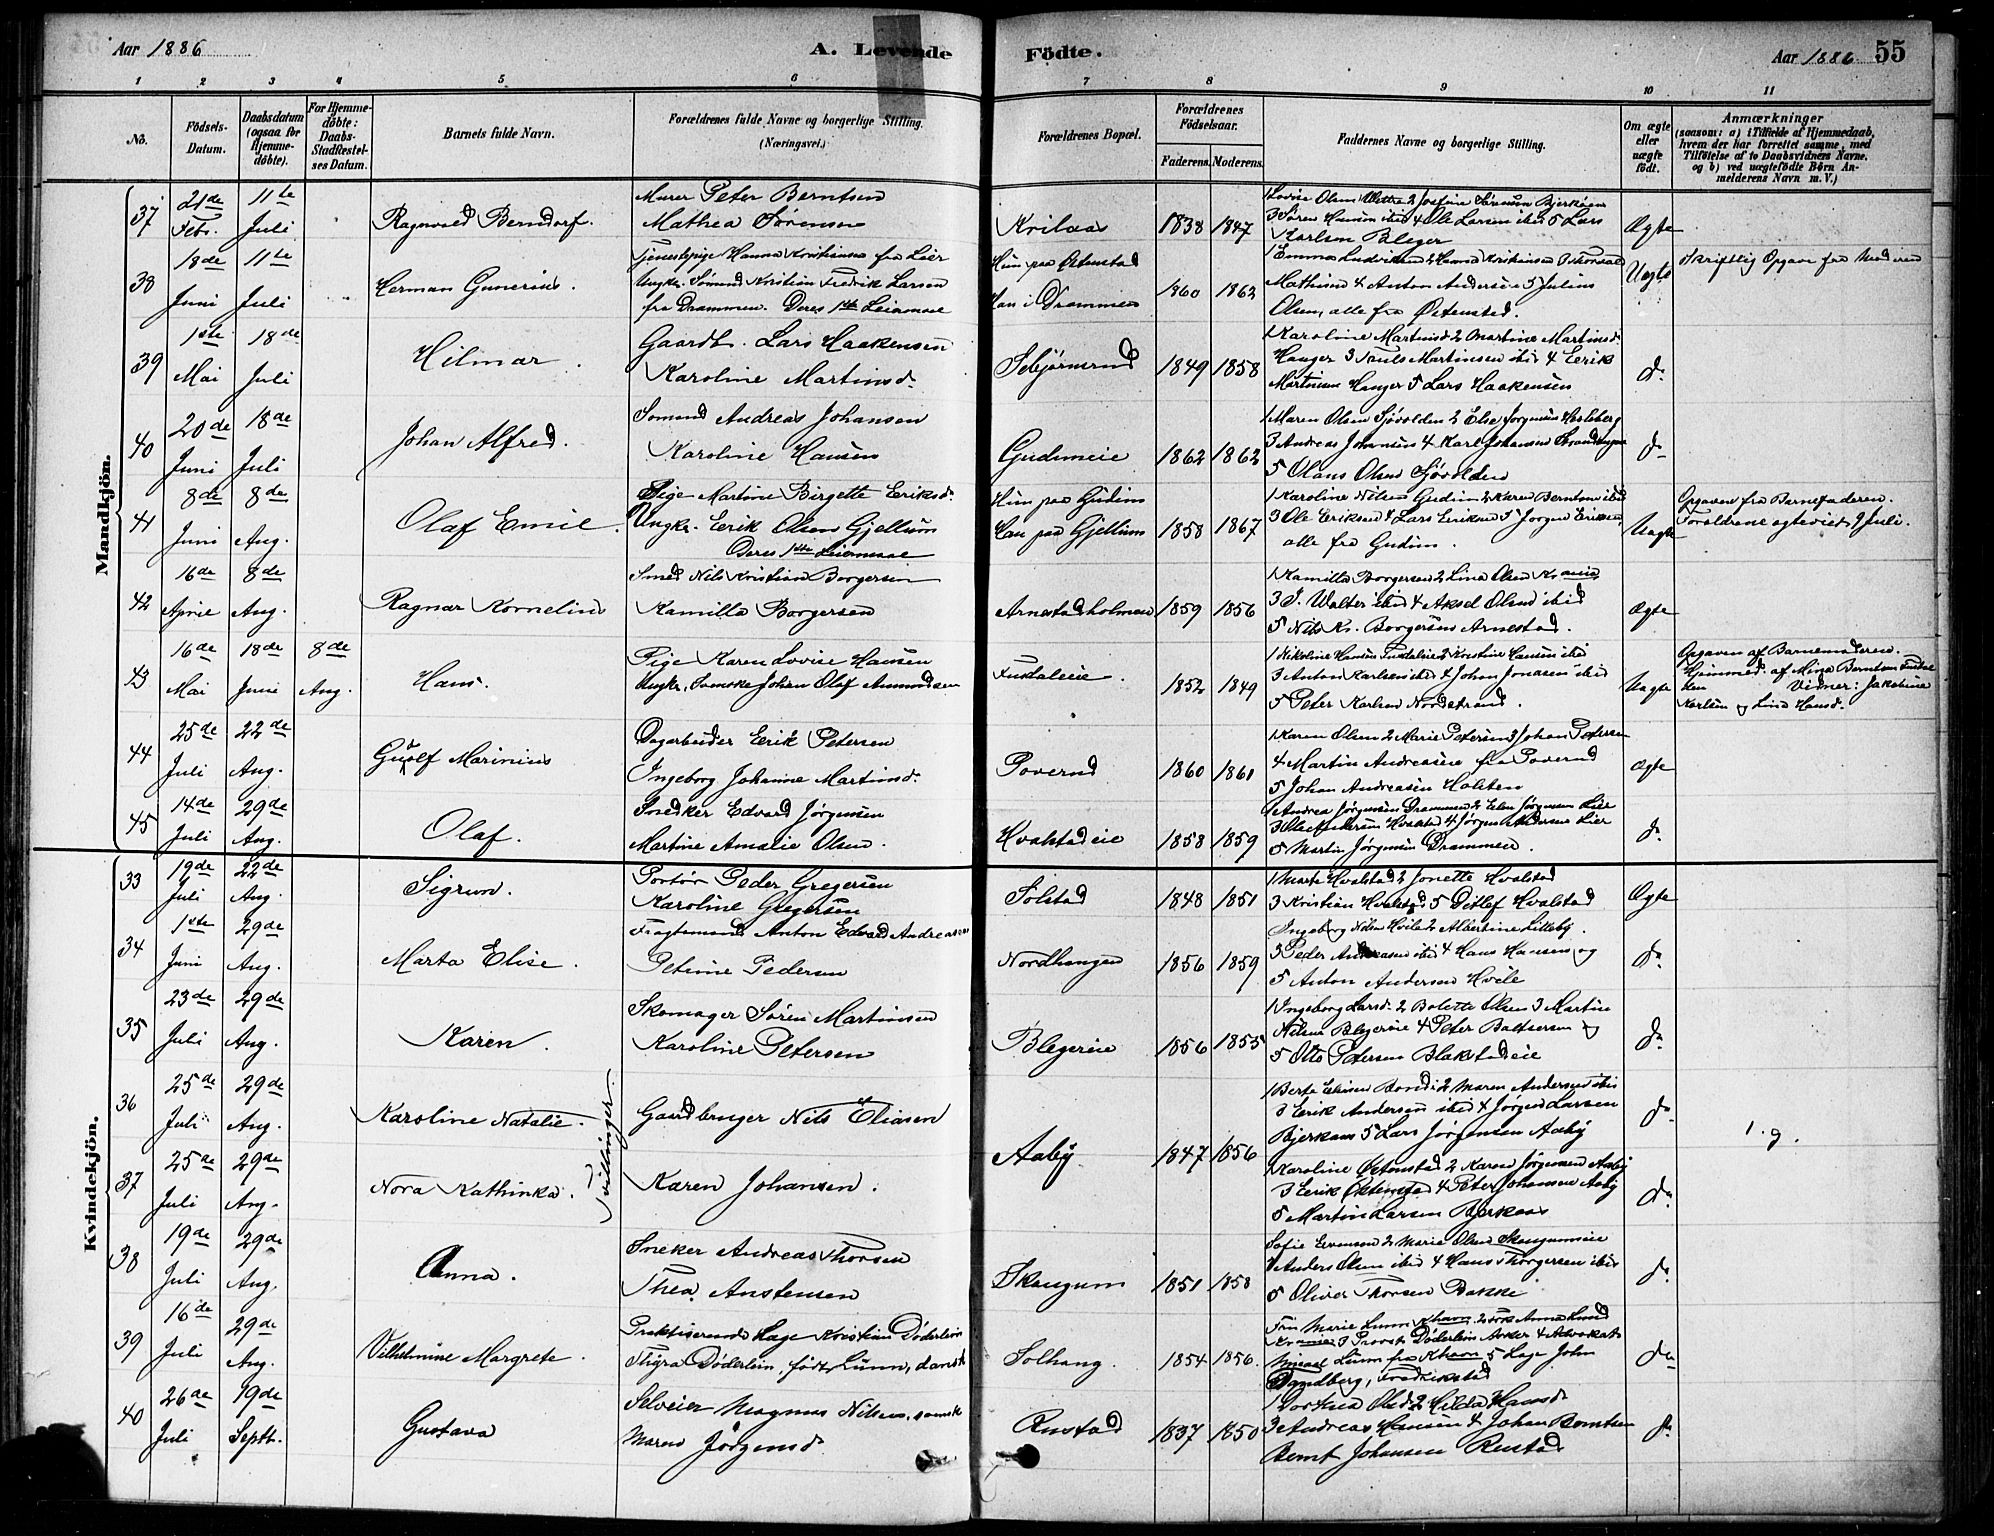 Aar 1886
A. Levende Födte.
Aar 1886 55
1 2 3 4 5 6 7 8 9 10 11
No.
Födsels-Datum.
Daabsdatum (ogsaa for Hjemme-döbte).
For Hjemme-döbte: Daabs-Stadfæstel-ses Datum.
Barnets fulde Navn.
Forældrenes fulde Navne og borgerlige Stilling. (Næringsvei.)
Forældrenes Bopæl.
Forældrenes Födselsaar.
Faderens. Moderens.
Faddernes Navne og borgerlige Stilling.
Om ægte eller uægte födt.
Anmærkninger
(saasom: a) i Tilfælde af Hjemmedaab, hvem der har forrettet samme, med Tilföielse af to Daabsvidners Navne, og b) ved uægtefödte Börn An-melderens Navn m. V.)
Mandkjön.
37 21de Febr. 11te Juli Ragnvald Berndorf.
Murer Peter Berntsen
Mathea Sørensen
1838 1847
3 Søren Hansen ibid 4 Ole Larsen ibid 5 Lars
Karlsen Bleger
Ægte
38 18de Juni 11te Juli Herman Gunerius.
Tjenestepige Hanna Kristiansen fra Lier
Ungkr. Sömand Kristian Fredrik Larsen
fra Drammen. Deres 1ste Leiermaal
Hun paa Østenstad
Han i Drammen
1860 1862
Mathisen 4 Anton Andersen 5 Julius
Olsen, alle fra Østensted.
Uægte
Skriftlig Opgave fra Moderen
39 1ste Mai 18de Juli Hilmar.
Gaardb. Lars Haakensen
Karoline Martinsd.
Sebjørnsrud
1849 1858
1 Karoline Martinsd 2 Martine Martinsd.
Hauger 3 Pauls Martinsen ibid 4 Eerik
Martinsen Hauger 5 Lars Haakensen
do
40 20de Juni 18de Juli Johan Alfred.
Sömand Andreas Johansen
Karoline Hansen
Gudimeie
1862 1862
1 Maren Olsen Sjøvolden 2 Else Jørgensen
3 Andreas Johansen 4 Karl Johansen
5 Olaus Olsen Sjøvolden
do
41 8de Juni 8de Aug. Olaf Emil.
Pige Martine Birgette Eriksd.
Ungkr. Eerik Olsen Gjellum
Deres 1ste Leiermaal
Hun paa Gudim
Han paa Gjellum
1858 1867
1 Karoline Nilsen Gudim 2 Karen Berntsen ibid
3 Ole Eriksen 4 Lars Eriksen 5 Jørgen Eriksen,
alle fra Gudim.
Uægte
Opgaven fra Barnefaderen.
Forældrene ægteviet 9 Juli.
42 16de April 8de Aug. Ragnar Kornelius
Smed Nils Kristian Borgersen
Kamilla Borgersen
Arnestadholmen
1859 1856
1 Kamilla Borgersen 2 Lina Olsen Krania
3 J. Walter ibid 4 Aksel Olsen ibid
5 Nils Kr. Borgersen Arnestad.
Ægte
43 16de Mai 18de Juni 8de Aug. Hans.
Pige Karen Lovise Hansen
Ungkr. Svenske Johan Olaf Amundsen
Fusdaleie.
1852 1849
1 Nikoline Hansen Fusdaleie 2 Kristine Hansen ibid
3 Anton Karlsen ibid 4 Johan Jonasen ibid
5 Peter Karlsen Nordstrand.
Uægte
Opgaven af Barnemoderen.
Hjemmed. af Mina Berntsen
Vidner: Jakobine
Karlsen og Lina Hansd.
44 25de Juli 22de Aug. Gudolf Marinius
Dagarbeider Eerik Petersen
Ingeborg Johanne Martinsd.
Poverud
1860 1861
1 Karen Olsen 2 Marie Petersen 3 Johan Petersen
4 Martin Andreasen fra Poverud
5 Johan Andreasen Holsten
Ægte
45 14de Juli 29de Aug. Olaf.
Snedker Edvard Jørgensen
Martine Amalie Olsen.
Hvalstadeie
1858 1859
1 Andrea Jørgensen Drammen 2 Elen Jørgensen Lier
3 Ole Andersen Hvalstad 4 Jørgen Andersen Lier
5 Martin Jørgensen Drammen.
do
Kvindekjön.
33 19de Juli 22de Aug. Sigrun.
Portør Peder Gregersen
Karoline Gregersen
Solstad
1848 1851
1 Marte Hvalstad 2 Jonette Hvalstad
3 Kristian Hvalstad 5 Ditlef Hvalstad
Ægte
34 1ste Juni 29de Aug. Marta Elise.
Fragtemand Anton Edvard Andreasen
Petrine Pedersen
Nordhengen
1856 1859
Ingeborg Nilsen Hvile 2 Albertine Lilleby.
3 Peder Andreasen ibid 4 Hans Hansen og
5 Anton Andersen Hvile
do
35 23de Juli 29de Aug. Karen.
Skomager Søren Martinsen
Karoline Petersen
Blegereie
1856 1855
1 Ingeborg Larsd. 2 Bolette Olsen 3 Martin
Nilsen Blegereie 4 Peter Baltsersen og
5 Otto Petersen Blakstadeie
do
36 25de Juli 29de Aug. Karoline Natalie.
Tvillinger.
Gaardbruger Nils Eliasen
Aaby
1847 1856
1 Berte Elisen Bondi 2 Maren Andersen ibid
3 Eerik Andersen ibid 4 Jørgen Larsen
Bjerkaas 5 Lars Jørgensen Aaby
do
1. g.
37 25de Juli 29de Aug. Nora Kathinka.
Karen Johansen.
1 Karoline Østenstad 2 Karen Jørgensen Aaby
3 Eerik Østenstad 4 Peter Johansen Aaby
5 Martin Larsen Bjerkaas
do
38 19de Juli 29de Aug. Anna.
Sneker Andreas Thorsen
Thea Anstensen
Skaugum
1851 1858
Sofie Evensen 2 Marie Olsen Skaugumeie
3 Anders Olsen ibid 4 Hans Thorgersen ibid
5 Oliver Thorsen Bakke
do
39 16de Juli 29de Aug. Vilhelmine Margrete.
Praktiserende Læge Kristian Døderlein
Thyra Døderlein, født Lunn, dansk
Solhaug.
1854 1856.
Fru Marie Lunn, Khavn 2 Frk Anna Lund
Krania 3 Provst Døderlein Asker 4 Advokat
Lunn fra Khavn 5 Læge John
Tandberg, Fredrikstad
do
40 26de Juli 19de Septb. Gustava
Selveier Magnus Nilsen, svensk
Maren Jörgensd.
Rustad
1837 1850
1 Dorthea Olsd 2 Hilda Hansd
3 Andreas Hansen 4 Johan Berntsen
Bernt Johansen Rustad
do